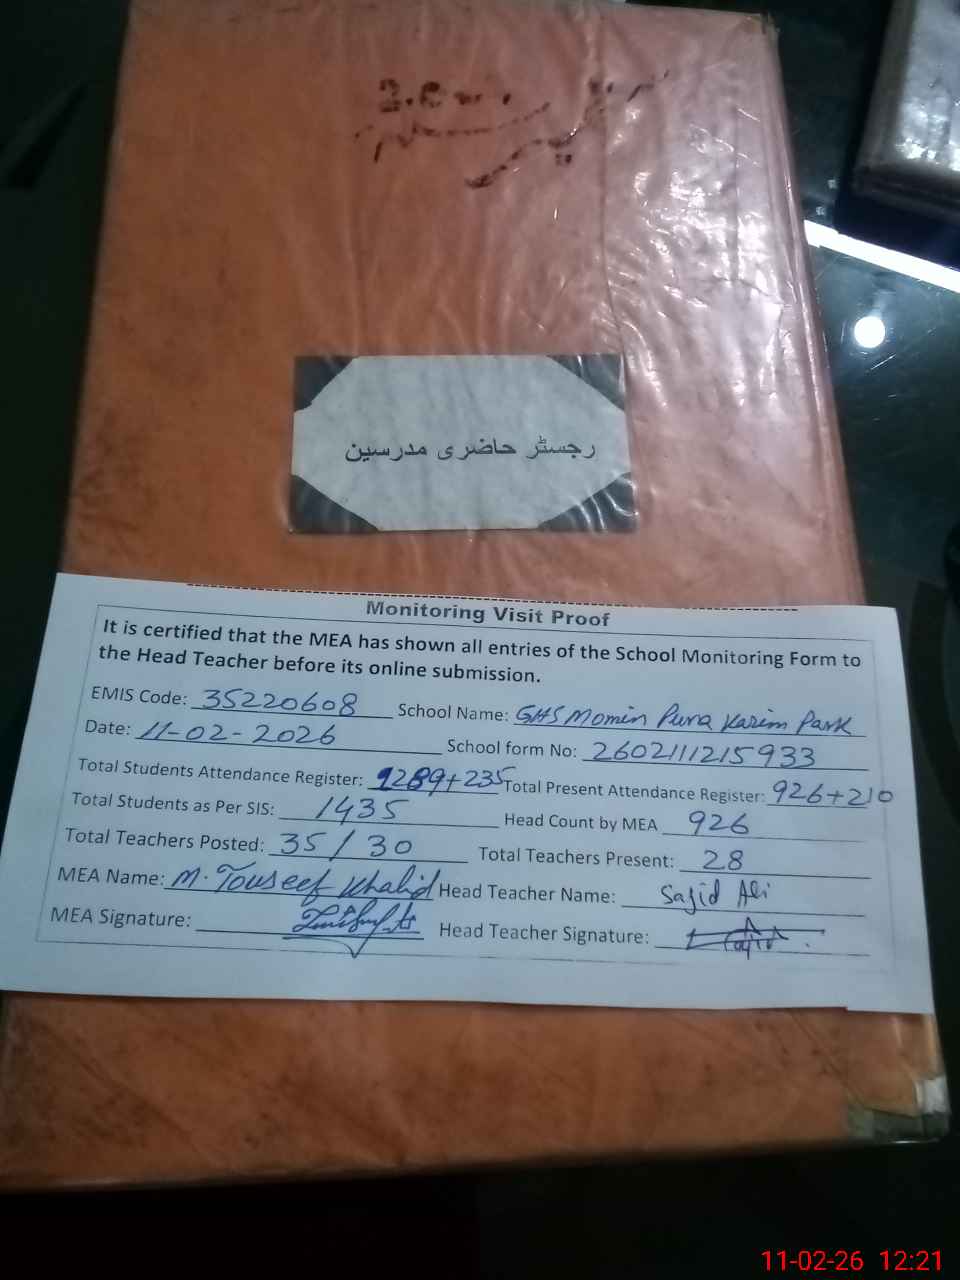 رجسٹر حاضری مدرسین
Monitoring Visit Proof
It is certified that the MEA has shown all entries of the School Monitoring Form to
the Head Teacher before its online submission.
EMIS Code: 35220608 School Name: GHS Momin Pura Karim Park
Date: 11-02-2026 School form No: 2602111215933
Total Students Attendance Register: 1289+235 Total Present Attendance Register: 926+210
Total Students as Per SIS: 1435 Head Count by MEA 926
Total Teachers Posted: 35/30 Total Teachers Present: 28
MEA Name: M. Touseef Khalid Head Teacher Name: Sajid Ali
MEA Signature: Head Teacher Signature:
11-02-26 12:21